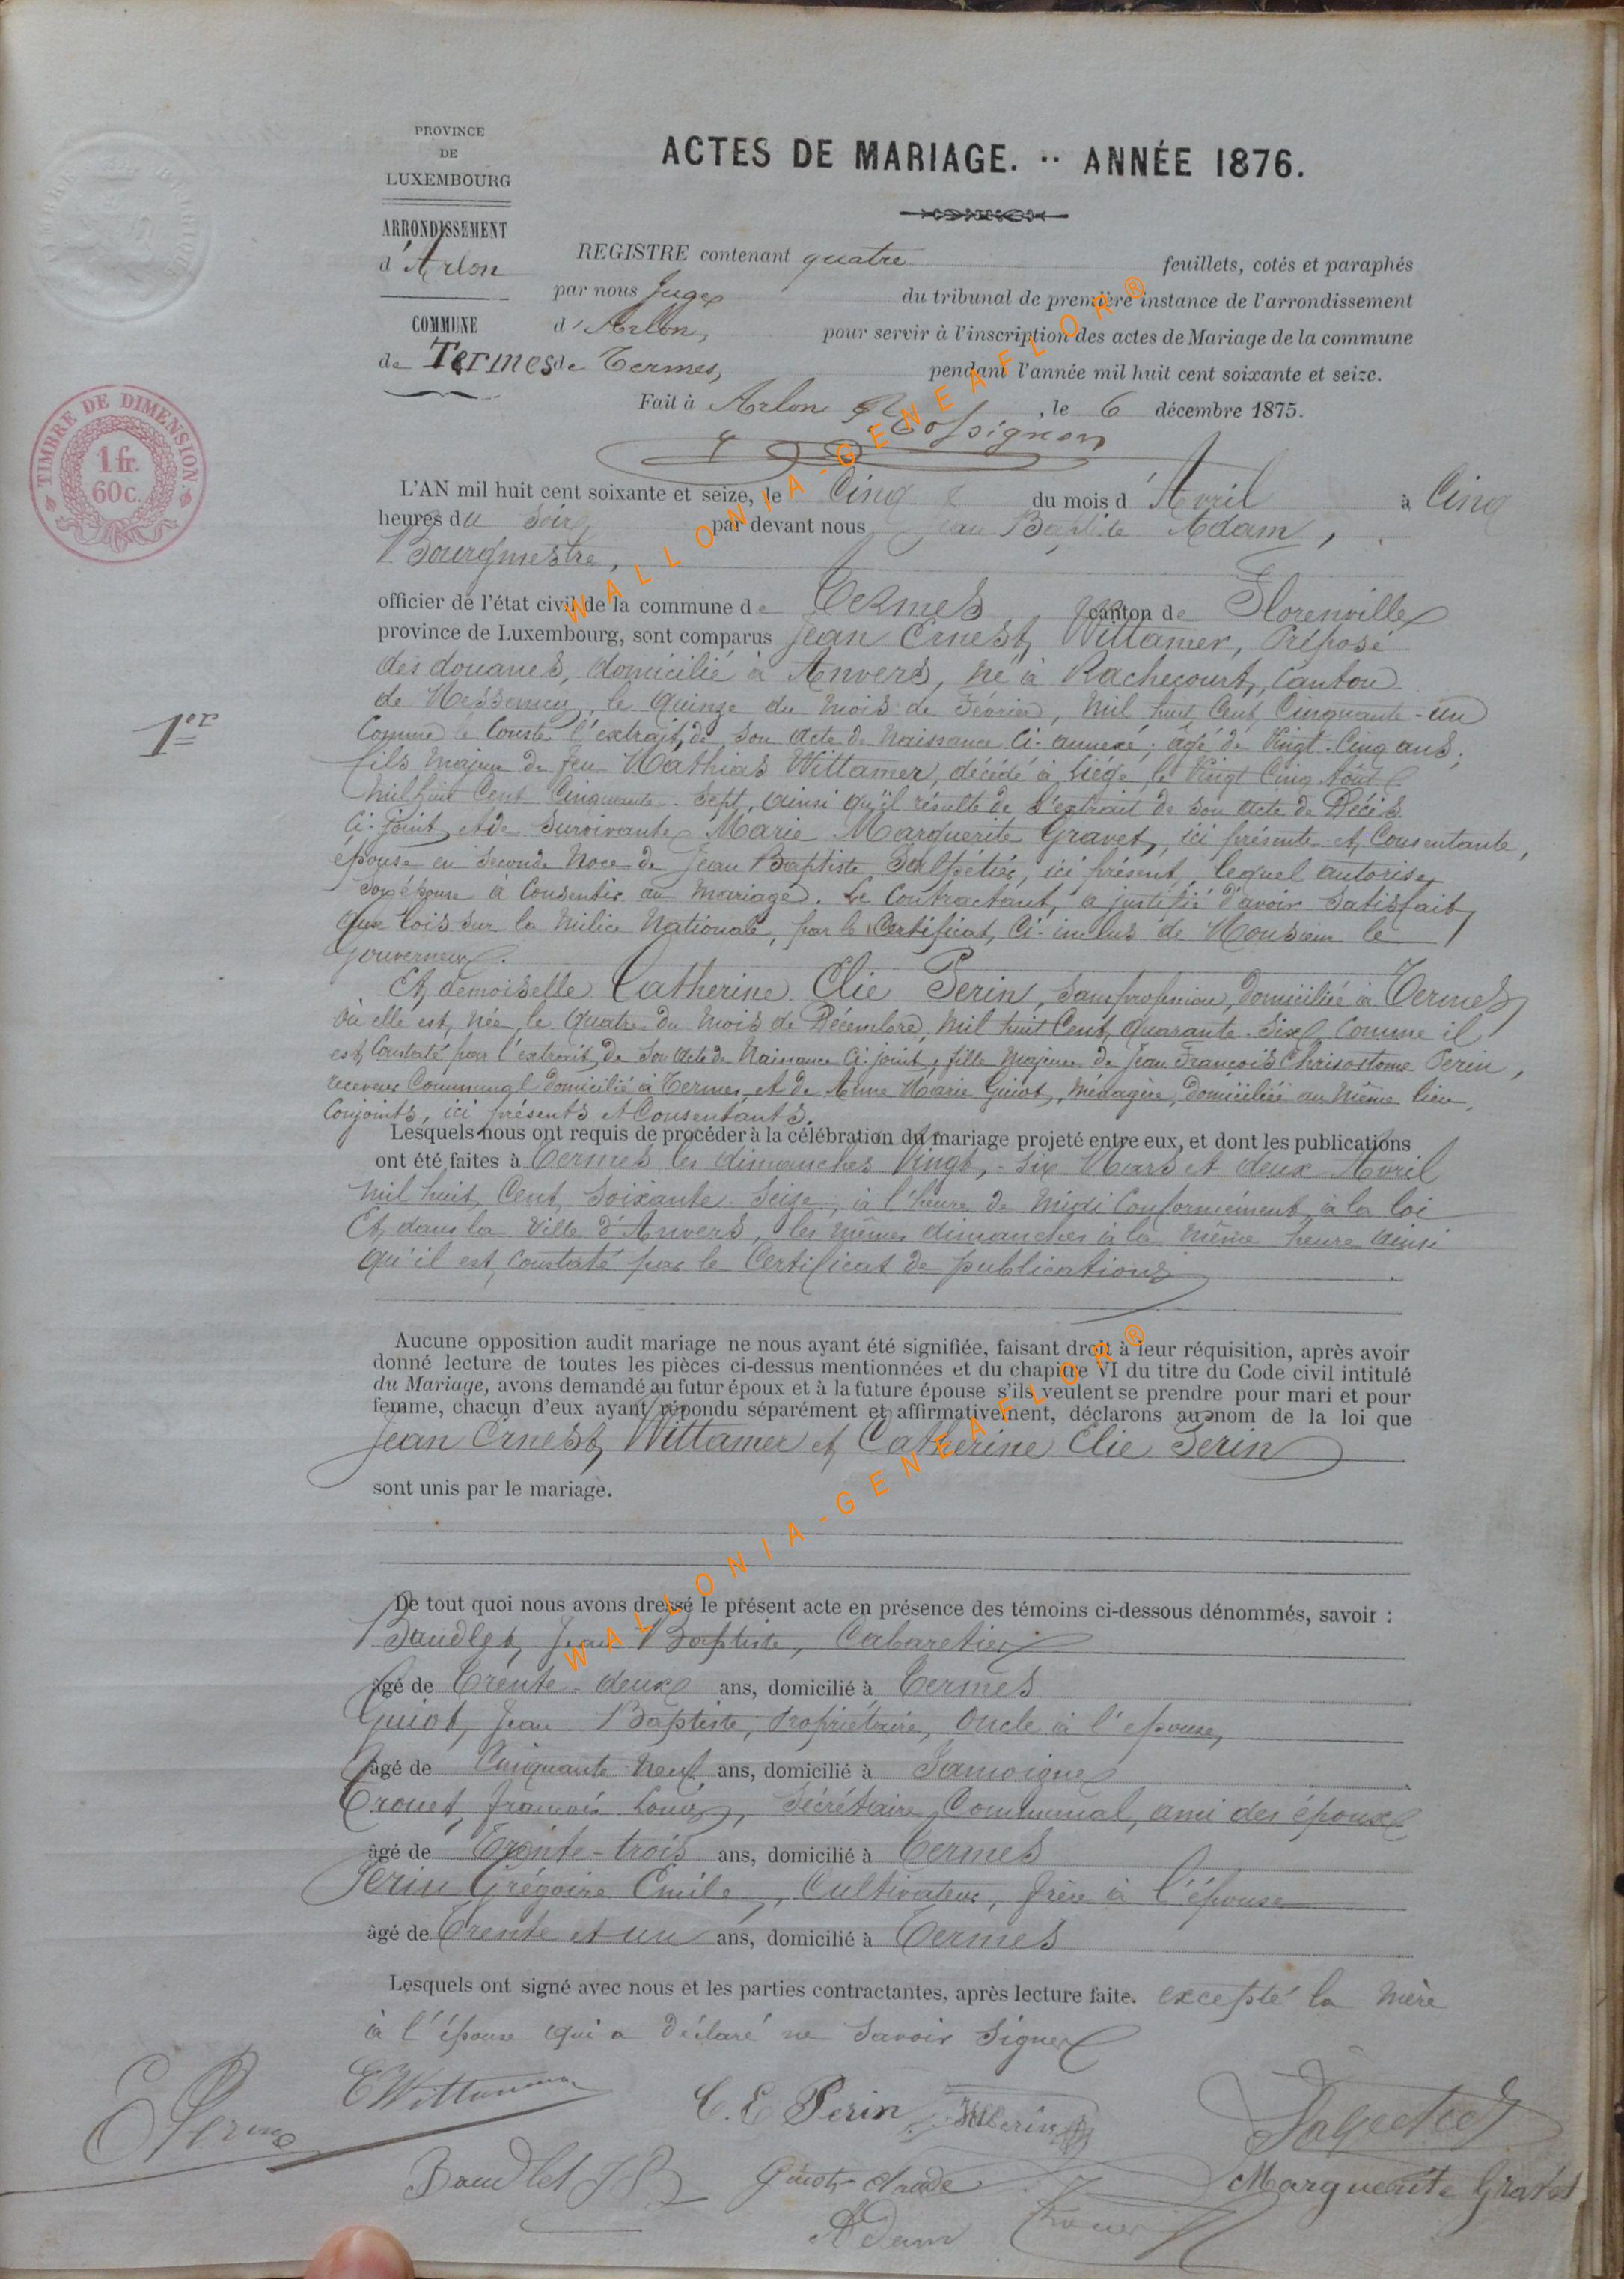 PROVINCE
DE
LUXEMBOURG
ARRONDISSEMENT
d'Arlon
COMMUNE
de Termes
ACTES DE MARIAGE. -- ANNÉE 1876.
REGISTRE contenant quatre feuillets, cotés et paraphés
par nous Juge du tribunal de première instance de l'arrondissement
d'Arlon, pour servir à l'inscription des actes de Mariage de la commune
de Termes, pendant l'année mil huit cent soixante et seize.
Fait à Arlon, le 6 décembre 1875.
TIMBRE DE DIMENSION
1 fr.
60c.
L'AN mil huit cent soixante et seize, le Cinq du mois d'Avril à Cinq
heures du soir par devant nous Jean Baptiste Adam,
Bourgmestre,
officier de l'état civil de la commune de Termes canton de Florenville
province de Luxembourg, sont comparus Jean Ernest Wittamer, Préposé
des douanes, domicilié à Anvers, né à Rachecourt, Canton
de Messancy, le quinze du mois de Février, mil huit Cent Cinquante-un
Comme le Conste l'extrait de son acte de Naissance Ci-annexé; âgé de Vingt-Cinq ans;
1er
fils Majeur de feu Mathias Wittamer, décédé à Liége, le Vingt Cinq Août
Mil huit Cent Cinquante-Sept, ainsi qu'il résulte de l'extrait de son acte de Décès
Ci-joint, et de survivante Marie Marguerite Gravet, ici présente et Consentante,
épouse en Seconde Noce de Jean Baptiste Salpétier, ici présent, lequel autorise
son épouse à Consentir au mariage. Le Contractant, a justifié d'avoir Satisfait
aux lois sur la Milice Nationale, par le Certificat, Ci-inclus de Monsieur le
Gouverneur.
Et, demoiselle Catherine Elie Perin, sans profession, Domiciliée à Termes
où elle est née, le quatre du mois de Décembre, Mil huit Cent quarante-Six, Comme il
est Constaté par l'extrait de son acte de Naissance Ci-joint, fille Majeure de Jean François Chrisostome Perin,
receveur Communal domicilié à Termes, et de Anne Marie Guiot, Ménagère, Domiciliée au Même lieu,
Conjoints, ici présents et Consentants.
Lesquels nous ont requis de procéder à la célébration du mariage projeté entre eux, et dont les publications
ont été faites à Termes les dimanches Vingt-Six Mars et deux Avril
Mil huit Cent Soixante-Seize, à l'heure de Midi Conformément à la loi
Et, dans la Ville d'Anvers, les mêmes dimanches à la même heure ainsi
qu'il est, constaté par le Certificat de publications
Aucune opposition audit mariage ne nous ayant été signifiée, faisant droit à leur réquisition, après avoir
donné lecture de toutes les pièces ci-dessus mentionnées et du chapitre VI du titre du Code civil intitulé
du Mariage, avons demandé au futur époux et à la future épouse s'ils veulent se prendre pour mari et pour
femme, chacun d'eux ayant répondu séparément et affirmativement, déclarons au nom de la loi que
Jean Ernest Wittamer et Catherine Elie Perin
sont unis par le mariage.
De tout quoi nous avons dressé le présent acte en présence des témoins ci-dessous dénommés, savoir :
Baudlet, Jean Baptiste, Cabaretier
âgé de Trente-deux ans, domicilié à Termes
Guiot, Jean Baptiste, Propriétaire, Oncle à l'épouse,
âgé de Cinquante Neuf ans, domicilié à Jamoigne
Trouet, François Louis, Sécrétaire Communal, ami des époux
âgé de Trente-trois ans, domicilié à Termes
Perin Grégoire Emile, Cultivateur, frère à l'épouse
âgé de Trente et un ans, domicilié à Termes
Lesquels ont signé avec nous et les parties contractantes, après lecture faite. excepté la Mère
à l'épouse qui a déclaré ne Savoir Signer
E Perin
E Wittamer
C. E Perin
Baudlet J B
Marguerite Gravet
Adam
WALLONIA-GENEAFLOR®
WALLONIA-GENEAFLOR®